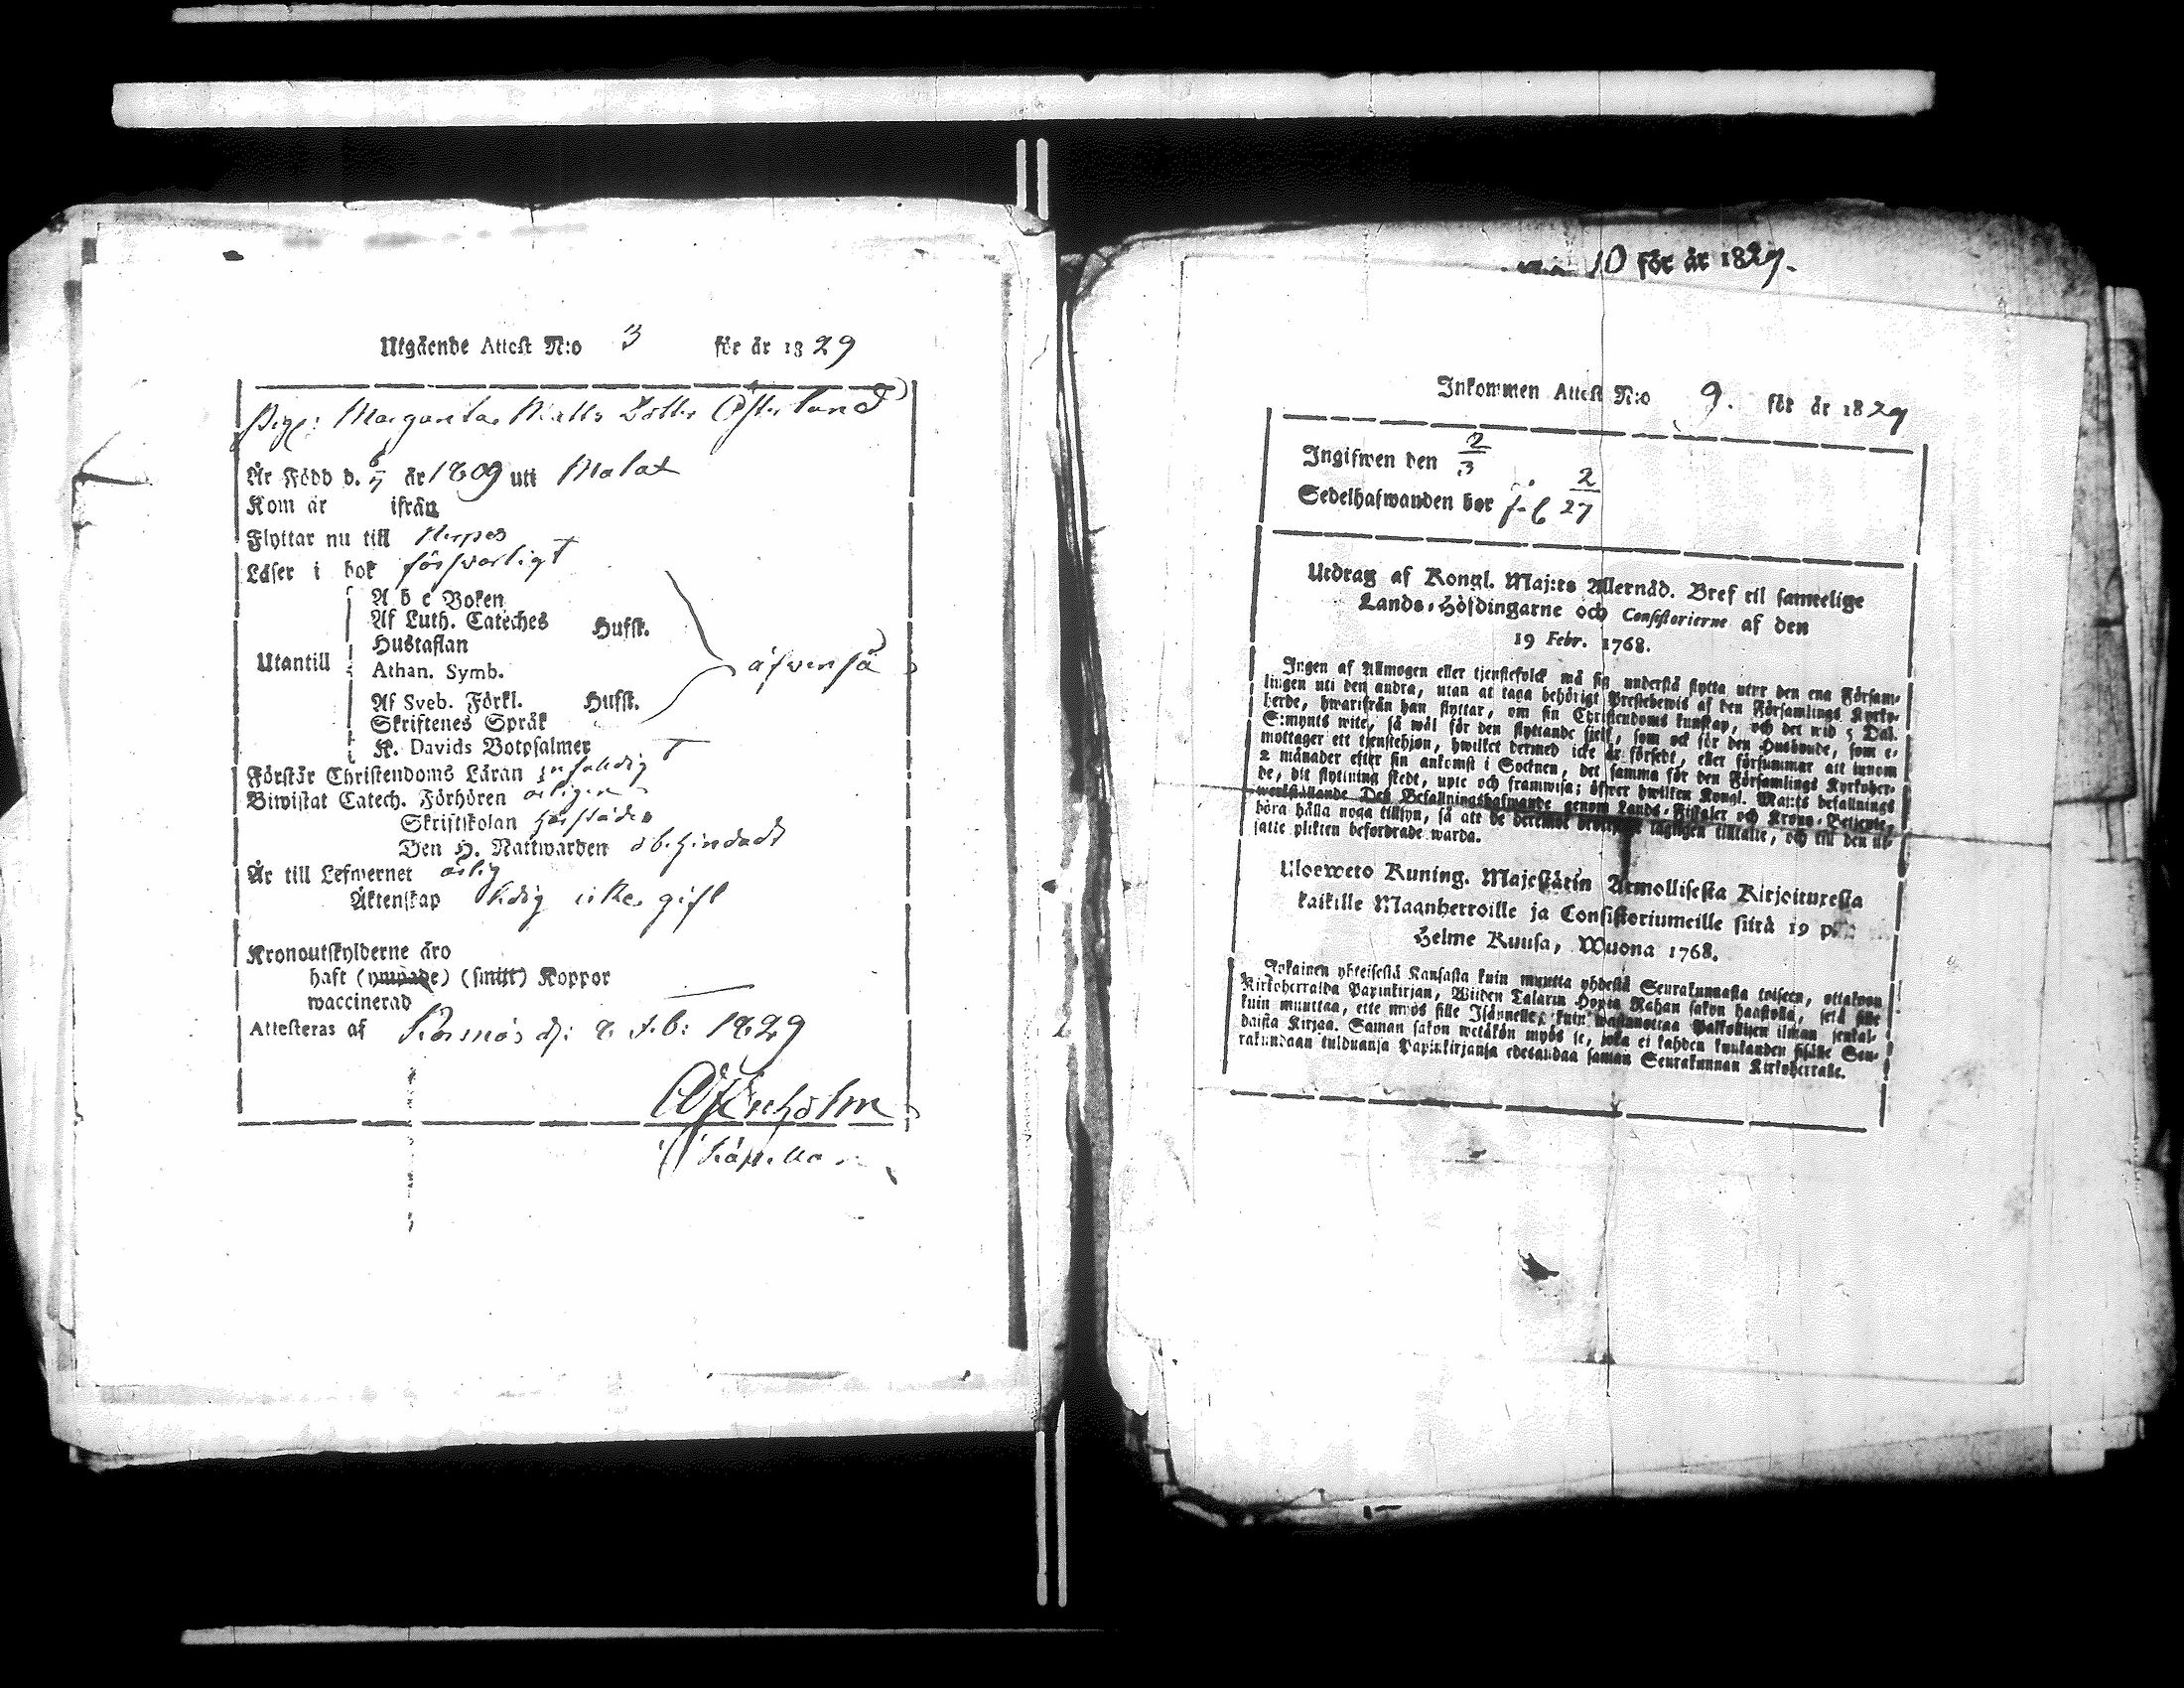 Utgående Attest N:o 3 för år 1829
Pig: Margareta Matts Dotter Österlund
Är Född d. 6/7 år 1809 uti Malax
Kom år ifrån
Flyttar nu till
Läser i bok försvarligt
A b c Boken
Af Luth. Cateches Hufst.
Hustaflan
Utantill
Athan. Symb. äfvenså
Af Sveb. Förkl. Hufst.
Skriftenes Språk
K. Davids Botpsalmer
Förstår Christendoms Läran enfaldig
Biwistat Catech. Förhören årligen
Skriftskolan härstädes
Den H. Nattwarden obehindrad
Är till Lefwernet ärlig
Äktenskap ledig icke gift
Kronoutskylderne äro
haft (ympade) (smitt) Koppor
waccinerad
Attesteras af d: 8 Feb: 1829
Kapellan
10 för år 1829.
Inkommen Attest N:o 9. för år 1829
Ingifwen den 2/3
Sedelhafwanden bor 2/27
Utdrag af Kongl. Maj:ts Allernåd. Bref til samtelige
Lands-Höfdingarne och Consistorierne af den
19 Febr. 1768.
Ingen af Allmogen eller tjenstefolck må sig understå flytta utur den ena Försam-
lingen uti den andra, utan at taga behörigt Prestebewis af den Församlings Kyrko-
herde, hwarifrån han flyttar, om sin Christendoms kunskap, och det wid 5 Dal.
S:mynts wite, så wäl för den flyttande sjelf, som ock för den Husbonde, som e-
mottager ett tjenstehjon, hwilket dermed icke är försedt, eller försummar att innom
2 månader efter sin ankomst i Socknen, det samma för den Församlings Kyrkoher-
de, dit flyttning skedt, upte och framwisa; öfwer hwilken Kongl. Maj:ts befallnings
werkställande Des Befallningshafwande genom Lands-Fiskaler och Krono-Betjente,
böra hålla noga tillsyn, så att de deremot brottslige lagligen tilltalte, och till den ut-
satte plikten befordrade warda.
Uloswето Kuning. Majestätin Armollisesta Kirjoituresta
kaikille Maanherroille ja Consistoriumeille siitä 19 p.
Helme Kuusa, Wuona 1768.
Jokainen yhteisestä Kansasta kuin muutta yhdestä Seurakunnasta toiseen, ottakoon
Kirkoherralda Papinkirjan, Wiiden Talarin Hopia Rahan sakon haastolla, setä sille
kuin muuttaa, ette myös sille Isännelle, kuin wastanottaa Palkollisen ilman senkal-
daista Kirjaa. Saman sakon wetäkön myös se, joka ei kahden kuukauden sisälle Seu-
rakundaan tulduansa Papinkirjansa edesandaa saman Seurakunnan Kirkoherralle.